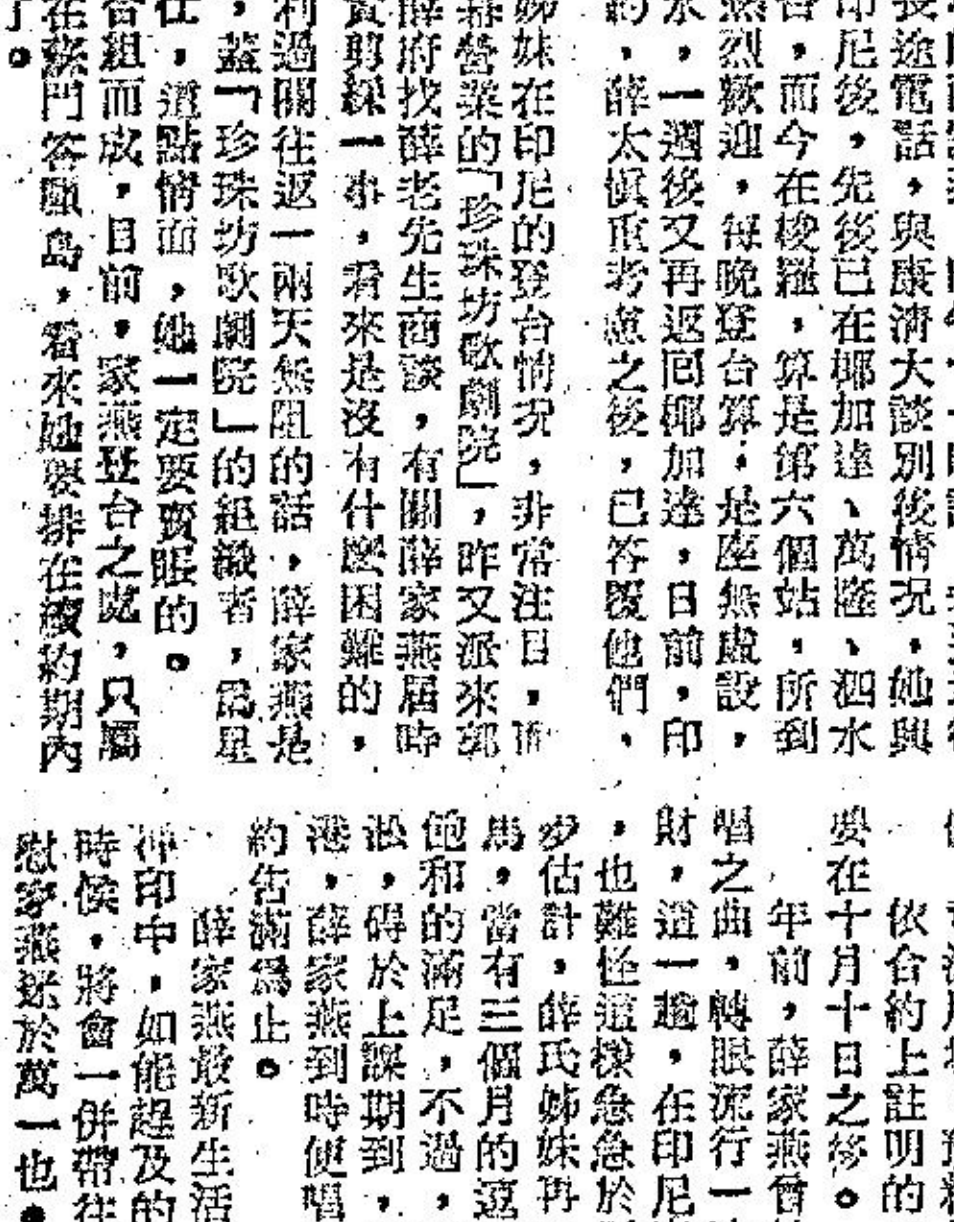 長途電話，與康濟大談別後情況，她與
印尼後，先後已在椰加達、萬隆、泗水
台，而今在梭羅，算是第六個站，所到
熱烈歡迎，每晚登台算，是座無虛設，
水，一週後又再返回椰加達，日前，印
約，薛太慎重考慮之後，已答覆他們，
姊妹在印尼的登台情況，非常注目，而
營業的「珍珠坊歌劇院」，昨又派來
薛府找薛老先生商談，有關薛家燕屆時
賓剪綵一事，看來是沒有什麽困難的，
利過關往返一兩天無阻的話，薛家燕是
，蓋「珍珠坊歌劇院」的組織者，爲星
仕，這點情面，她一定要賣賬的。
合組而成，目前，家燕登台之處，只屬
在蘇門答臘島，看來她要排在續約期內
了。
依合約上註明的
要在十月十日之後。
年前，薛家燕曾
唱之曲，轉眼流行一
財，這一趟，在印尼
，也難怪這樣急急於
步估計，薛氏姊妹再
馬，當有三個月的
他和的滿足，不過，
淞，碍於上課期到，
港，薛家燕到時便唱
約告滿爲止。
薛家燕最新生活
沖印中，如能趕及的
時候，將會一併帶往
慰家燕迷於萬一也。